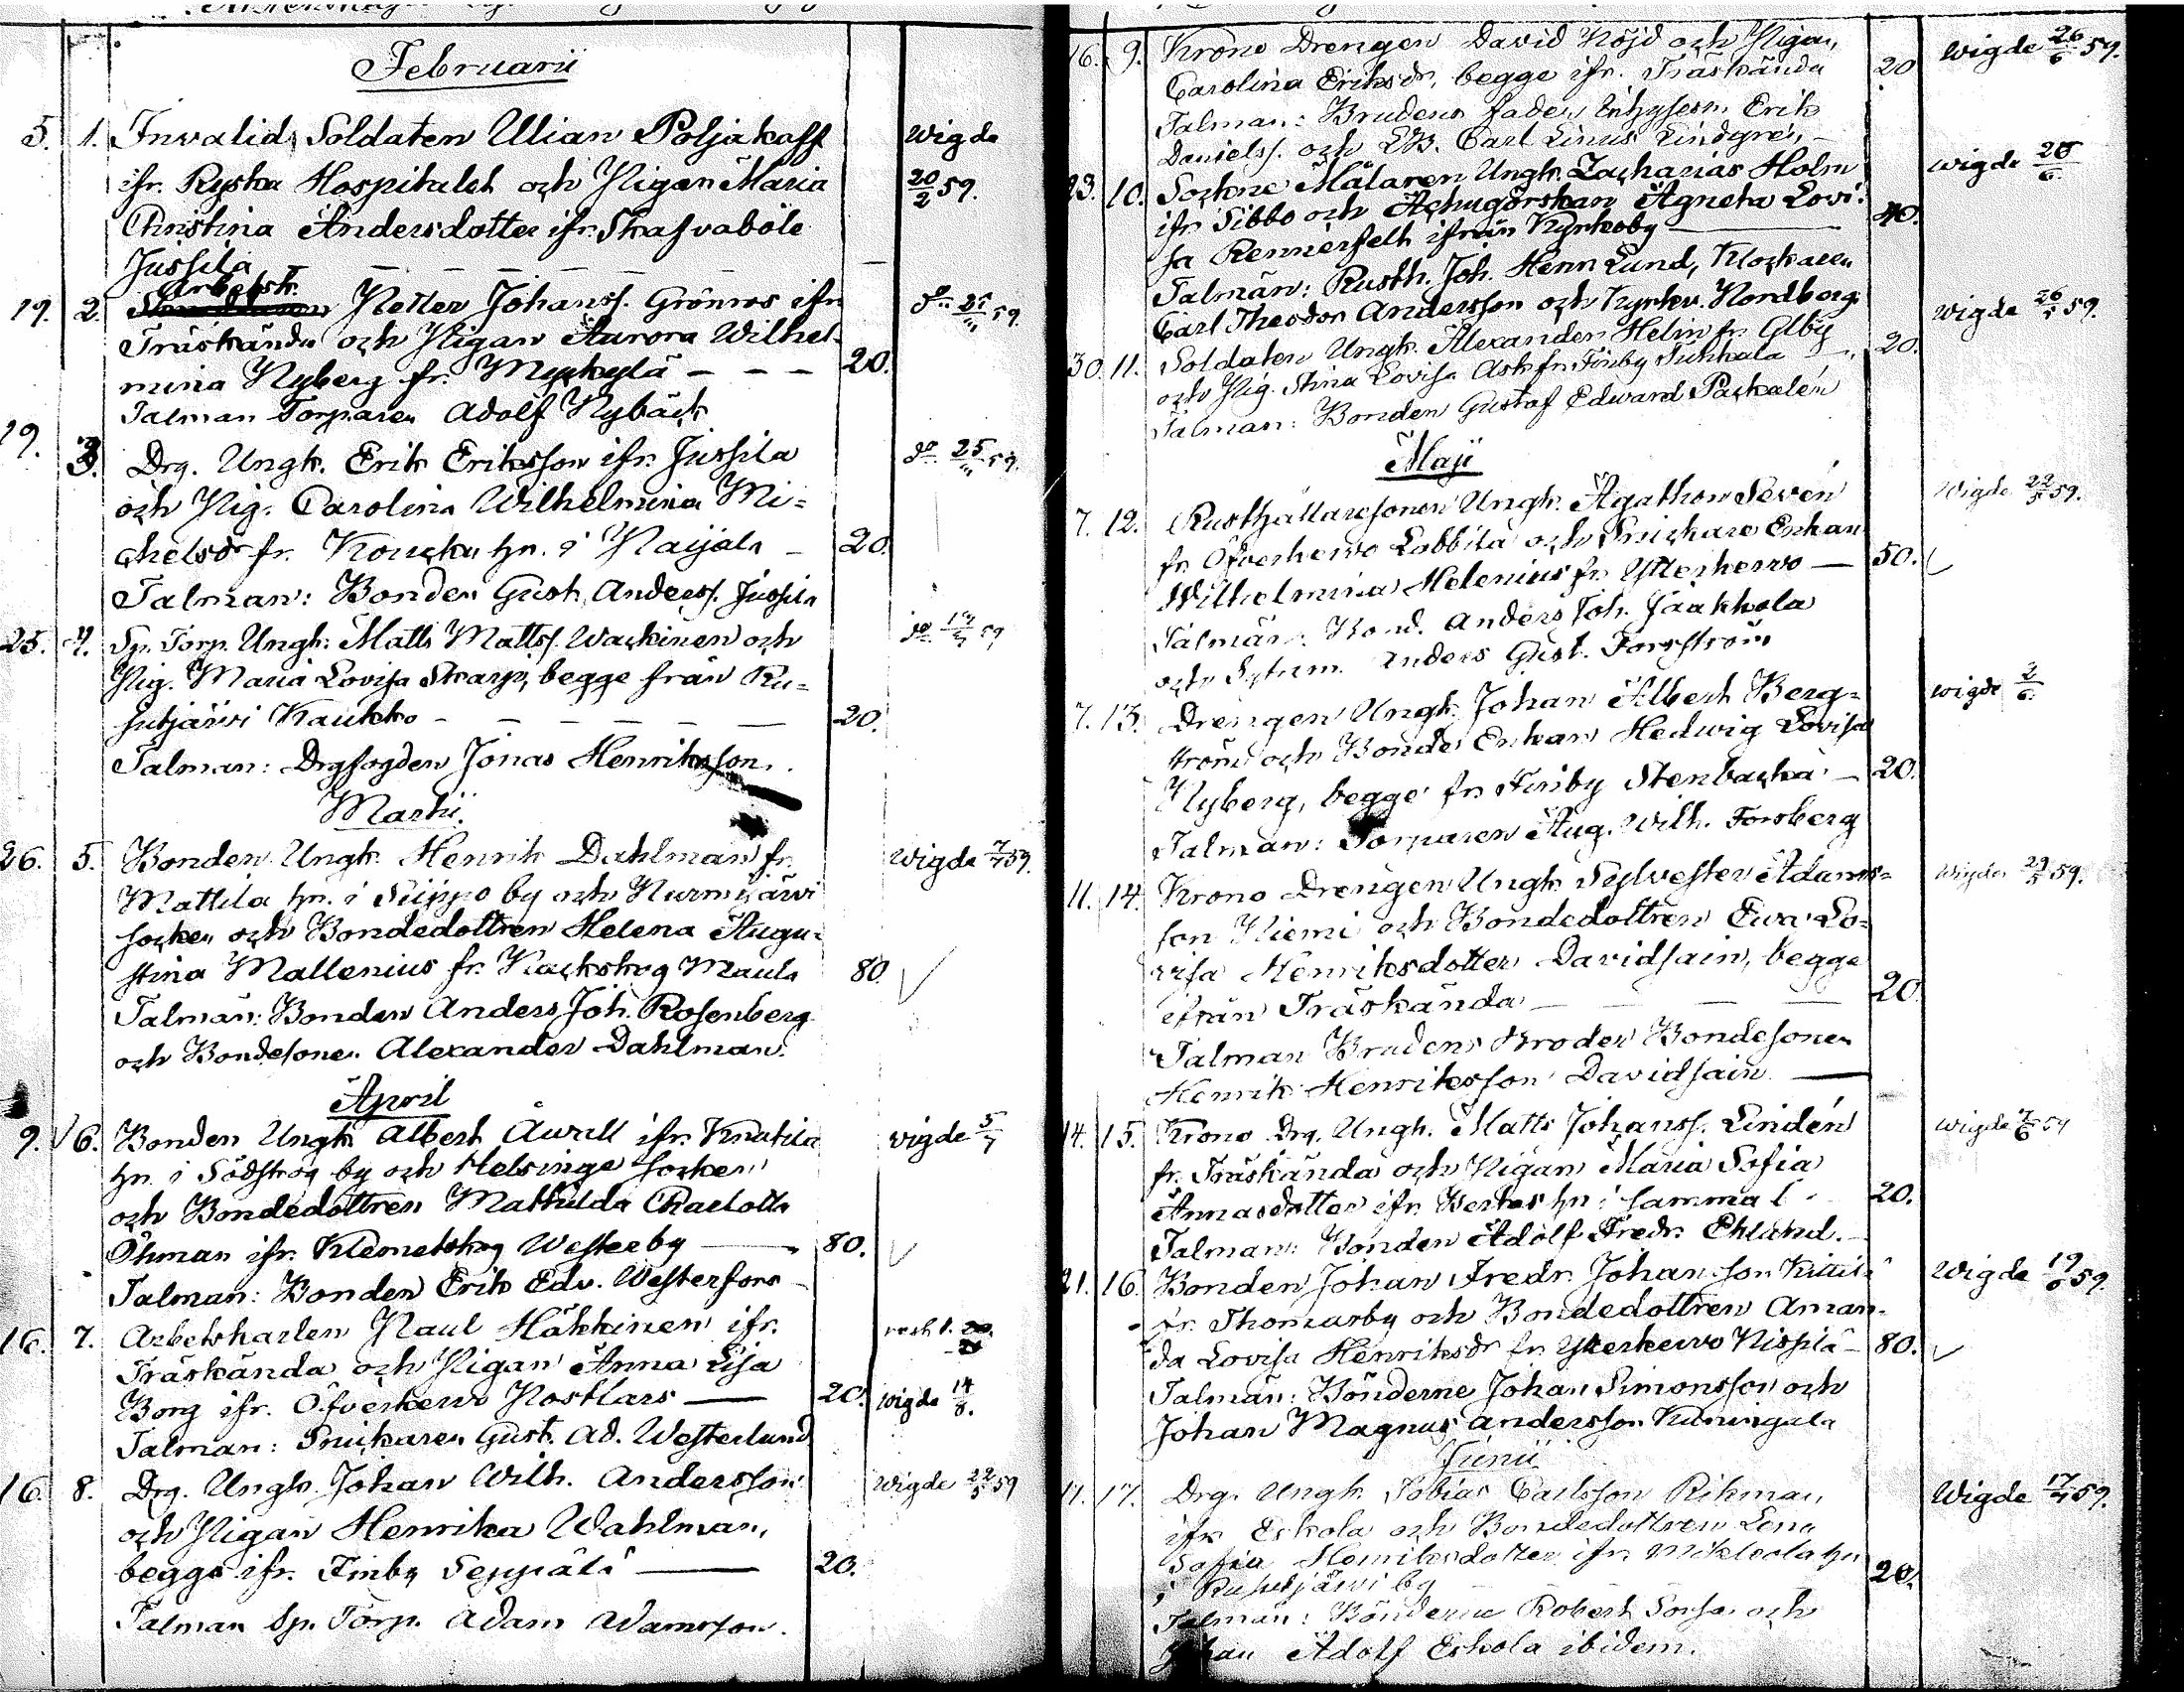 Februarii
5. 1. Invalid Soldaten Ulian Poljakoff Wigde
ifr. Ryska Hospitalet och Pigan Maria 20/2 59.
Christina Andersdotter ifr. Skafvaböle
Jussila — — — — — —
Arbetsk.
19. 2. Petter Johanss. Grönroos ifr. do 25/III 59.
Träskända och Pigan Aurora Wilhel-
mina Nyberg fr. Myckylä — — — 20.
Talman Torparen Adolf Nybäck
19. 3. Drg. Ungk. Erik Eriksson ifr. Jussila do 25/III 59.
och Pig. Carolina Wilhelmina Mi=
chelsdr fr. hn. i Paijala — 20.
Talman: Bonden Gust. Anderss. Jussila
25. 4. Sp. Torp. Ungk. Matts Matts. Wackinen och do
Pig. Maria Lovisa Skarp, begge från Ru=
sutjärvi Kaukko — — — — — — 20.
Talman: Drgfogden Jonas Henriksson.
Martii.
26. 5. Bonden Ungk. Henrik Dahlman fr. Wigde 7/7 59.
Mattila hn. i Siippo by och Nurmijärvi
socken och Bondedottren Helena Augu=
stina Mallenius fr. Nackskog Maula 80.
Talmän: Bonden Anders Joh. Rosenberg
och Bondesonen Alexander Dahlman.
April
9. 6. Bonden Ungk. Albert Åvall ifr. Knutila wigde 5/7
hn. i Sodskog by och Helsinge socken
och Bondedottren Mathilda Charlotta
Öhman ifr. Klemetskog Westerby — 80.
Talman: Bonden Erik Edv. Westerfors
16. 7. Arbetskarlen Paul Häkkinen ifr.
Träskända och Pigan Anna Lisa
Borg ifr. Öfverkervo Nostlars — 20. wigde 14/8.
Talman: Snickaren Gust. Ad. Westerlund
16. 8. Drg. Ungk. Johan Wilh. Andersson Wigde 22/5 59
och Pigan Henrika Wahlman,
begge ifr. Finby Seppälä — 20.
Talman Sp. Torp. Adam Adamsson.
16. 9. Krono Drengen David Nöjd och Pigan Wigde 26/6 59.
Carolina Eriksdr, begge ifr. Träskända 20
Talman: Brudens fader Inhysesn Erik
Danielss. och Carl Linus Lindgren —
23. 10. Sockne Målaren Ungk. Zacharias Holm wigde 26/6
ifr Sibbo och Agneta Lovi=
sa Rennerfelt ifrån Kyrkoby — 40.
Talmän: Rusth. Joh. Henr. Lund, Klockaren
Carl Theodor Andersson och Kyrkv. Nordberg
30. 11. Soldaten Ungk. Alexander Helin fr. Alby 20. Wigde 26/5 59.
och Pig. Stina Lovisa Ask fr. Finby Suhkala —
Talman: Bonden Gustaf Edward Packalén
Maji
7. 12. Rusthållaresonen Ungk. Agathon Sevén Wigde 22/5 59.
fr. Öfverkervo Labbila och Snickare Enkan
Wilhelmina Helenius fr. Ytterkervo — 50.
Talmän: Bond. Anders Joh. Jaakkola
och Sytnm. Anders Gust. Forsström
7. 13. Drengen Ungk. Johan Albert Berg= wigde 2/6.
ström och Bonde Enkan Hedwig Lovisa
Nyberg, begge fr. Finby Stenbacka — 20.
Talman: Torparen Aug. Wilh. Forsberg
11. 14. Krono Drengen Ungk. Sylvester Adams= Wigde 29/5 59.
son Niemi och Bondedottren Eva Lo=
visa Henriksdotter Davidsain, begge
ifrån Träskända — — — 20.
Talman Brudens Broder Bondesonen
Henrik Henriksson Davidsain —
14. 15. Krono Drg. Ungk. Matts Johanss. Lindén wigde
fr. Träskända och Pigan Maria Sofia
Annasdotter ifr. hn i samma 20.
Talman: Bonden Adolf Fredr. Eklund.
21. 16. Bonden Johan Fredr. Johansson Kittilä Wigde 19/6 59.
fr. Thomasby och Bondedottren Aman-
da Lovisa Henriksdr fr. Ytterkervo Nissilä — 80.
Talmän: Bönderne Johan Simonsson och
Johan Magnus Andersson Kuningala
Junii
11. 17. Drg. Ungk. Tobias Carlsson Rikman Wigde 17/7 59.
ifr. Eskola och Bondedottren Lena
Sofia Henriksdotter ifr. Mikkola hn
i Rusutjärvi by 20.
Talmän: Bönderne Robert Sorsa och
Johan Adolf Eskola ibidem.